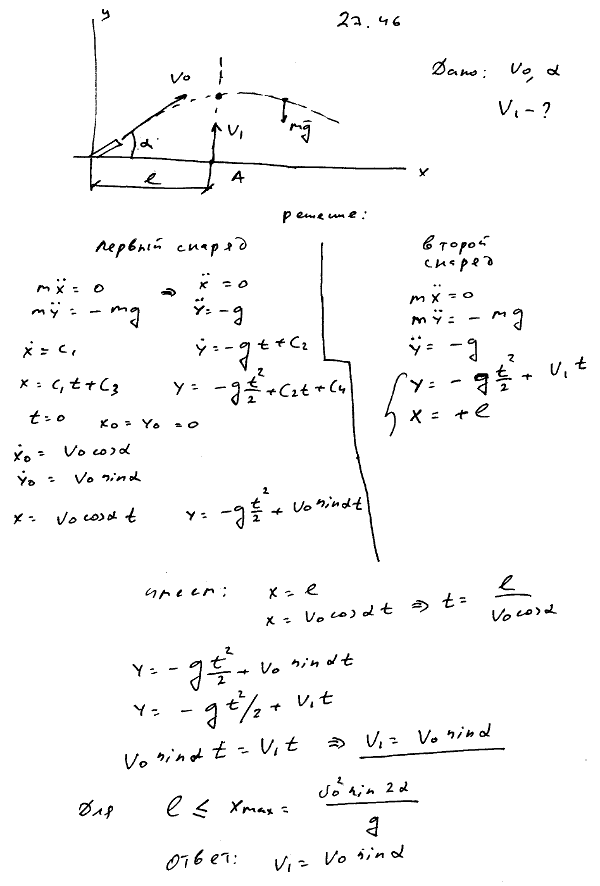 27.46
y
Дано: V₀, α
V₀
V₁ - ?
V₁
mg̅
α
x
A
l
решение:
первый снаряд
mẍ = 0 ⇒ ẍ = 0
mÿ = - mg ÿ = -g
ẋ = C₁ ẏ = -gt + C₂
x = C₁t + C₃ y = -g t²/2 + C₂t + C₄
t=0 x₀ = y₀ = 0
ẋ₀ = V₀ cosα
ẏ₀ = V₀ sinα
x = V₀ cosα t y = -g t²/2 + V₀ sinαt
второй
снаряд
mẍ = 0
mÿ = - mg
ÿ = -g
y = - g t²/2 + V₁ t
x = + l
имеем: x = l
x = V₀ cosα t ⇒ t = l / V₀ cosα
y = - g t²/2 + V₀ sinαt
y = - g t²/2 + V₁ t
V₀ sinα t = V₁ t ⇒ V₁ = V₀ sinα
Для l ≤ xmax = V₀² sin 2α / g
Ответ: V₁ = V₀ sinα